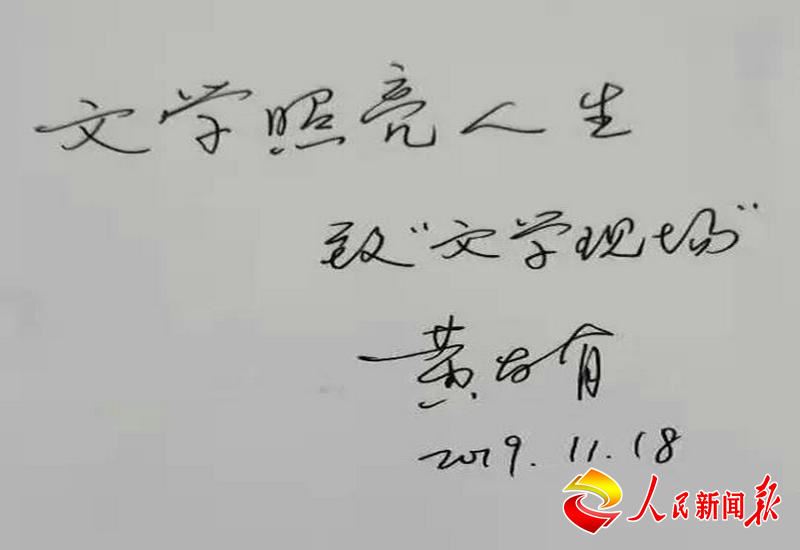 文学照亮人生
致"文学现场"
黄发有
2019.11.18
人民新闻报